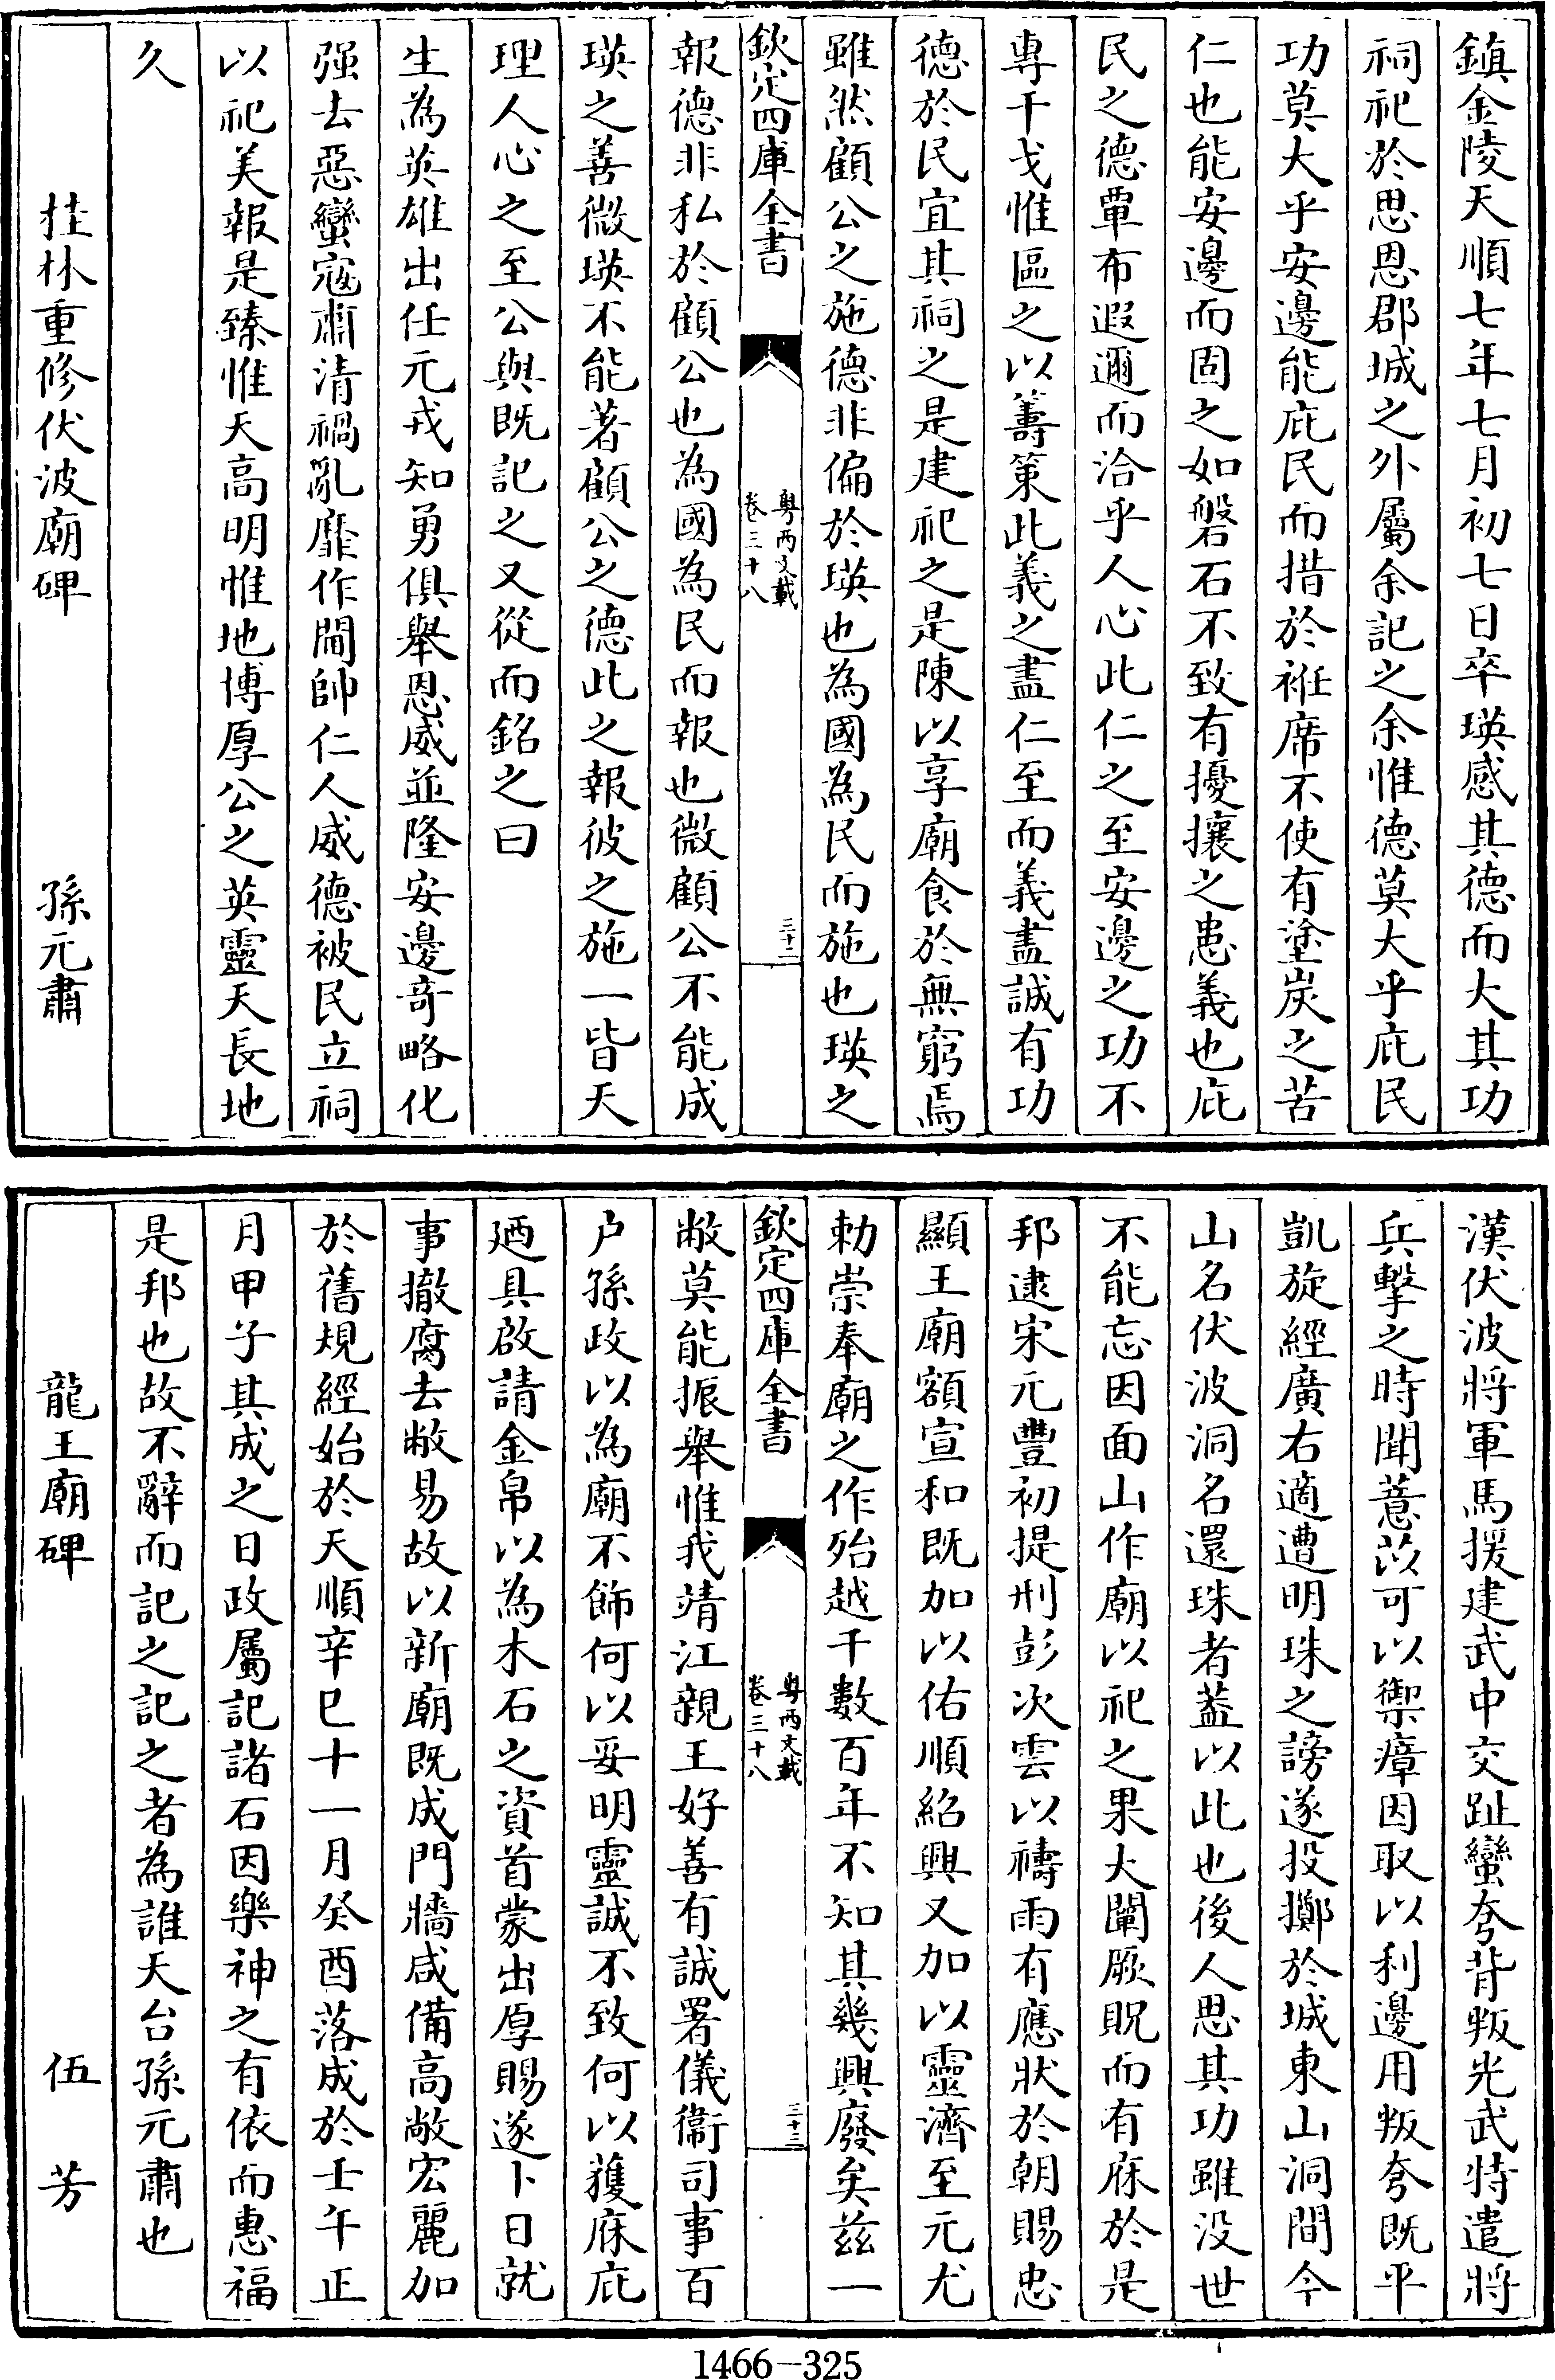 鎮金陵天順七年七月初七日卒瑛感其德而大其功
祠祀於思恩郡城之外屬余記之余惟德莫大乎庇民
功莫大乎安邊能庇民而措於袵席不使有塗炭之苦
仁也能安邊而固之如磐石不致有擾攘之患義也庇
民之德覃布遐邇而洽乎人心此仁之至安邊之功不
專干戈惟區之以籌策此義之盡仁至而義盡誠有功
德於民宜其祠之是建祀之是陳以享廟食於無窮焉
雖然顧公之施德非偏於瑛也為國為民而施也瑛之
欽定四庫全書
粵西文載
卷三十八
三十二
報德非私於顧公也為國為民而報也微顧公不能成
瑛之善微瑛不能著顧公之德此之報彼之施一皆天
理人心之至公與既記之又從而銘之曰
生為英雄出任元戎知勇俱舉恩威並隆安邊竒略化
强去惡蠻宼肅清禍亂靡作閫帥仁人威德被民立祠
以祀美報是臻惟天高明惟地博厚公之英靈天長地
久
桂林重修伏波廟碑
孫元肅
漢伏波將軍馬援建武中交趾蠻夸背叛光武特遣將
兵擊之時聞薏苡可以禦瘴因取以利邊用叛夸既平
凱旋經廣右適遭明珠之謗遂投擲於城東山洞間今
山名伏波洞名還珠者葢以此也後人思其功雖没世
不能忘因面山作廟以祀之果大闡厥貺而有庥於是
邦逮宋元豐初提刑彭次雲以禱雨有應狀於朝賜忠
顯王廟額宣和既加以佑順紹興又加以靈濟至元尤
勅崇奉廟之作殆越千數百年不知其幾興廢矣兹一
欽定四庫全書
粵西文載
卷三十八
三十三
敝莫能振舉惟我靖江親王好善有誠署儀衞司事百
户孫政以為廟不飾何以妥明靈誠不致何以獲庥庇
廼具啟請金帛以為木石之資首蒙出厚賜遂卜日就
事撤腐去敝易故以新廟既成門牆咸備高敞宏麗加
於舊規經始於天順辛巳十一月癸酉落成於壬午正
月甲子其成之日政屬記諸石因樂神之有依而惠福
是邦也故不辭而記之記之者為誰天台孫元肅也
龍王廟碑
伍芳
1466-325